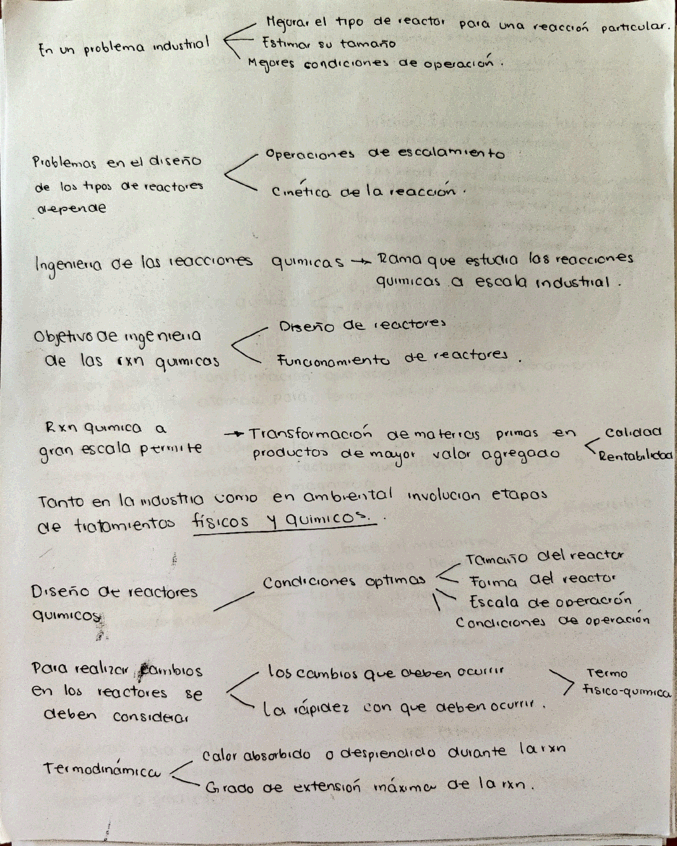 En un problema industrial
Mejorar el tipo de reactor para una reacción particular.
Estimar su tamaño
Mejores condiciones de operación.
Problemas en el diseño
de los tipos de reactores
depende
Operaciones de escalamiento
Cinética de la reacción.
Ingenieria de las reacciones quimicas → Rama que estudia las reacciones
quimicas a escala industrial.
Objetivo de ingenieria
de las rxn quimicas
Diseño de reactores
Funcionamiento de reactores.
Rxn quimica a
gran escala permite
→ Transformación de materias primas en
productos de mayor valor agregado
Calidad
Rentabilidad
Tanto en la industria como en ambiental involucran etapas
de tratamientos físicos y quimicos.
Diseño de reactores
quimicos
Condiciones optimas
Tamaño del reactor
Forma del reactor
Escala de operación
Condiciones de operación
Para realizar cambios
en los reactores se
deben considerar
los cambios que deben ocurrir
La rápidez con que deben ocurrir.
Termo
fisico-quimica
Termodinámica
Calor absorbido o desprendido durante la rxn
Grado de extensión máxima de la rxn.